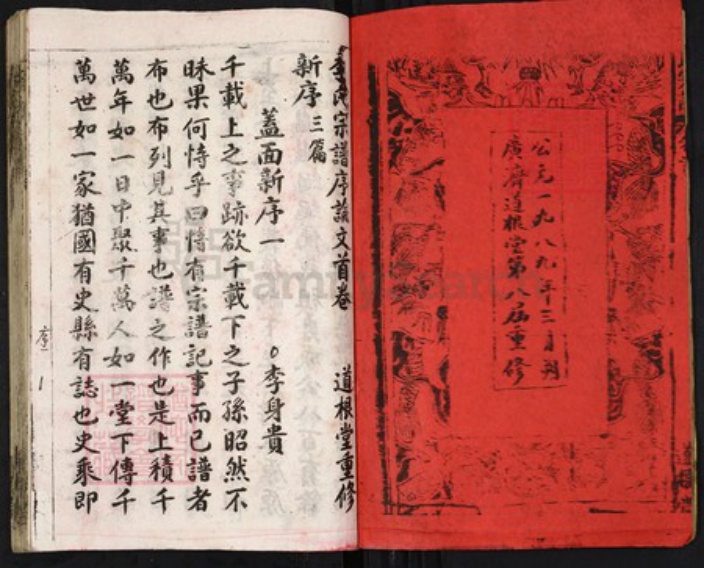 公元一九八九年三月朔
廣濟道根堂第八届重修
李氏宗譜序議文首卷 道根堂重修
新序三篇
蓋面新序一 。李身貴
千載上之事跡欲千載下之子孫昭然不
昧果何恃乎曰恃有宗譜記事而已譜者
布也布列見其事也譜之作也是上積千
萬年如一日中聚千萬人如一堂下傳千
萬世如一家猶國有史縣有誌也史乘即
序一 1